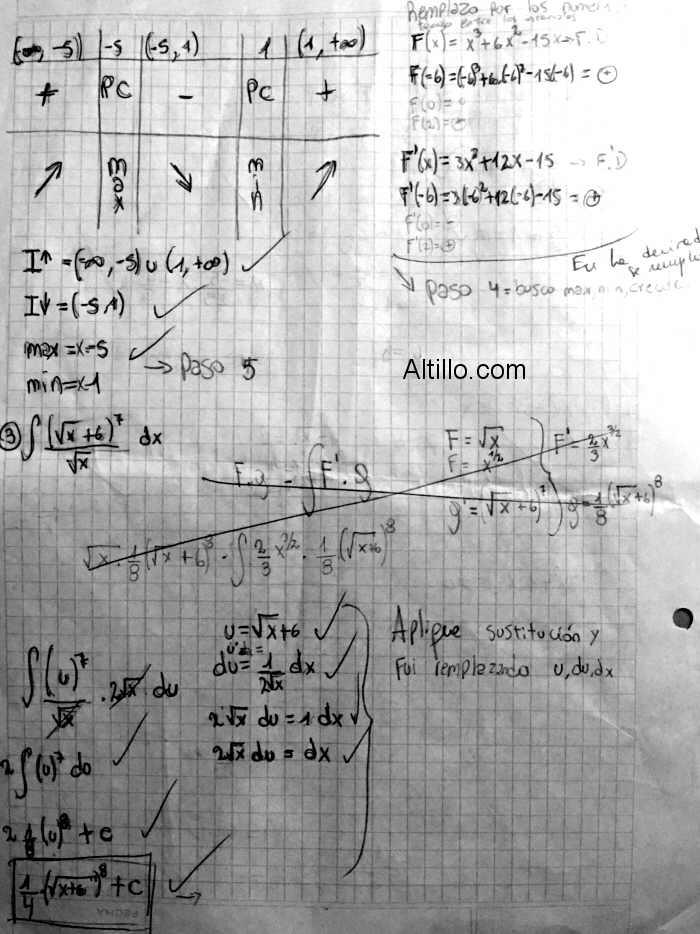 Remplazo por los numer
F(x) = x³+6x²-15x → F.D
F(-6)=(-6)³+6.(-6)²-15(-6) = +
F(0) =
F(2) =
F'(x) = 3x²+12x-15 → F'.D
F'(-6)=3(-6²+12(-6)-15 = +
F'(0) = -
F'(2) = +
En la derivada
se rempla
Paso 4 = busco max, min, crecim
(-∞, -5) | -5 | (-5, 1) | 1 | (1, +∞)
+ | PC | - | PC | +
↗ | max | ↘ | min | ↗
I↑ = (-∞, -5) ∪ (1, +∞)
I↓ = (-5,1)
max = x=-5
min = x-1
→ Paso 5
Altillo.com
③ ∫ (√x +6)⁷ / √x dx
F.g - ∫ F'. g
F = √x
F = x^1/2
F' = 2/3 x^3/2
g' = (√x +6)⁷
g = 1/8 (√x+6)⁸
√x . 1/8 (√x +6)⁸ - ∫ 2/3 x^3/2 . 1/8 (√x+6)⁸
u = √x+6
du = 1/2√x dx
2√x du = 1 dx
2√x du = dx
Aplique sustitución y
Fui remplazando u, du, dx
∫ (u)⁷/√x . 2√x du
2 ∫ (u)⁷ du
2 1/8 (u)⁸ + c
1/4 (√x+6)⁸ + C
FECHA